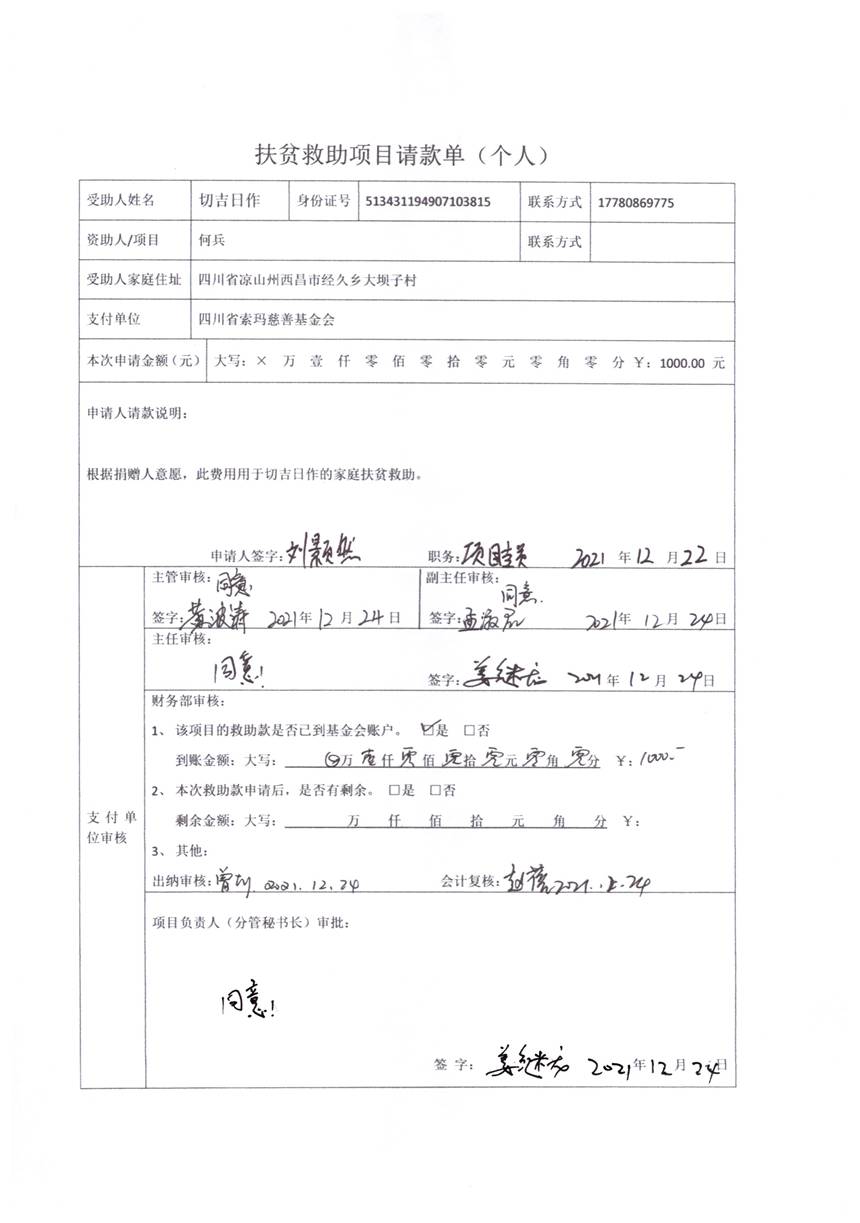 扶贫救助项目请款单（个人）
受助人姓名 切吉日作 身份证号 513431194907103815 联系方式 17780869775
资助人/项目 何兵 联系方式
受助人家庭住址 四川省凉山州西昌市经久乡大坝子村
支付单位 四川省索玛慈善基金会
本次申请金额（元） 大写：× 万 壹 仟 零 佰 零 拾 零 元 零 角 零 分 ￥：1000.00 元
申请人请款说明：
根据捐赠人意愿，此费用用于切吉日作的家庭扶贫救助。
申请人签字：刘颢然 职务： 2021 年 12 月 22 日
主管审核：同意 副主任审核：同意.
签字： 2021年 12 月 24 日 签字： 2021年 12 月 24日
主任审核：
同意！ 签字：姜继龙 2021 年 12 月 24日
财务部审核：
1、 该项目的救助款是否已到基金会账户。 ☑是 □否
到账金额：大写： 万 壹 仟 零 佰 零 拾 零 元 零 角 零 分 ￥：1000.-
2、 本次救助款申请后，是否有剩余。 □是 □否
剩余金额：大写： 万 仟 佰 拾 元 角 分 ￥：
支 付 单
位审核
3、 其他：
出纳审核： 2021.12.24 会计复核： 2021.12.24
项目负责人（分管秘书长）审批：
同意！
签 字：姜继龙 2021年12月24日